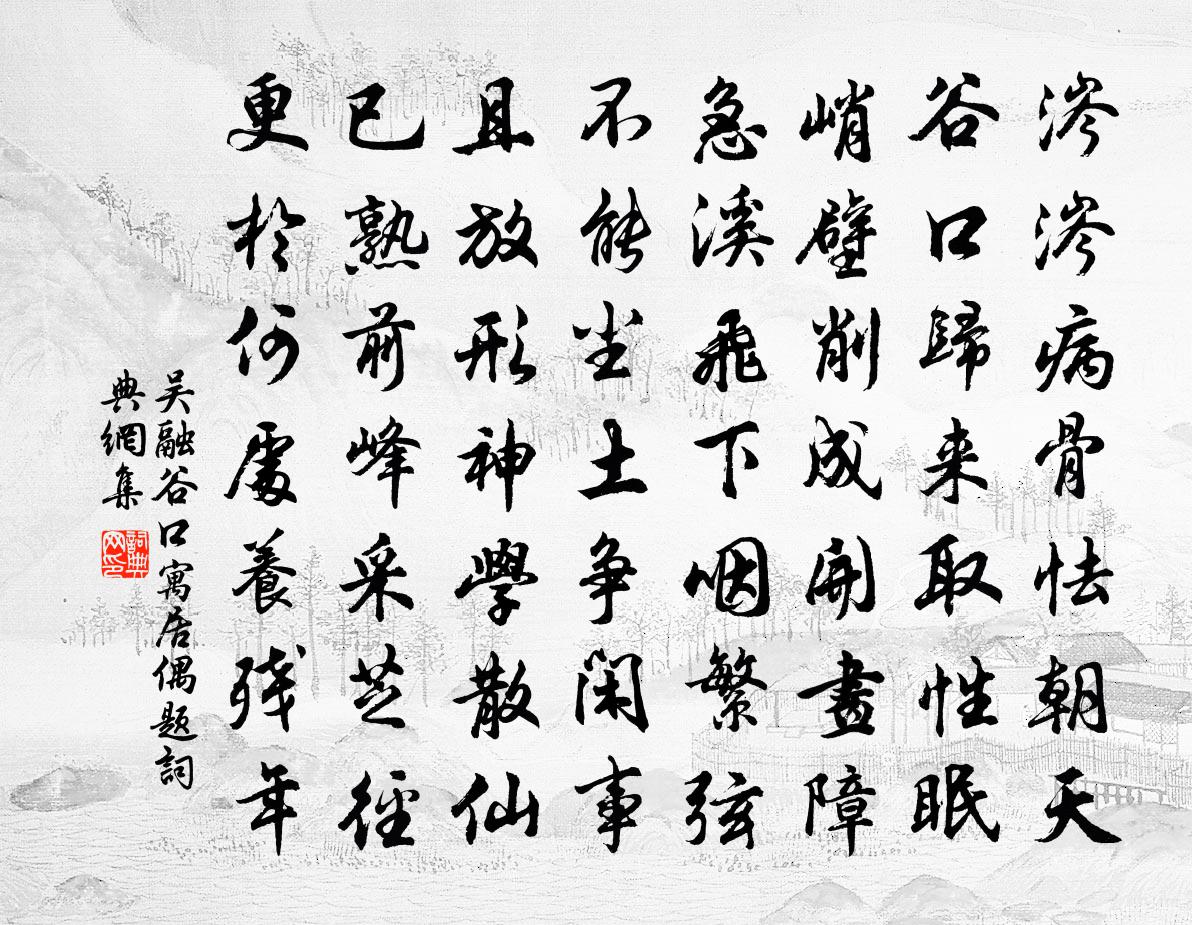 涔涔病骨怯朝天
谷口歸来取性眠
峭壁削成開畫障
急溪飛下咽繁弦
不能塵土争閑事
且放形神學散仙
已熟前峰采芝徑
更於何處養殘年
吴融谷口寓居偶題詞
典網集
詞典
网印